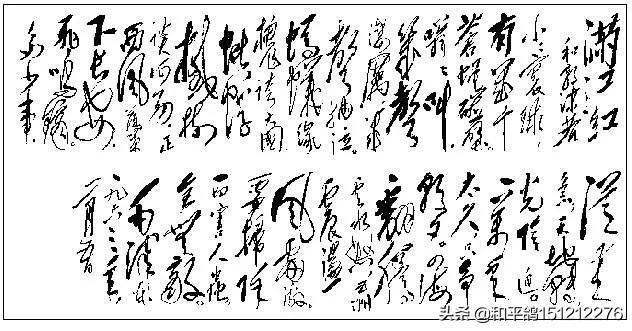 满江红
和郭沫若
小小寰球，
有几个
苍蝇碰壁。
嗡嗡叫
几声
凄厉，几
声抽泣。
蚂蚁缘
槐夸大国
蚍蜉
撼树
谈何易。正
西风落叶
下长安
飞鸣镝。
多少事，
从来
急。天地转
光阴迫。
一万年
太久，只争
朝夕。四海
翻腾
云水怒，五洲
震荡
风雷激。
要扫除
一切害人虫
全无敌。
毛泽东
一九六三年
一月九日
头条@和平鸽151212276